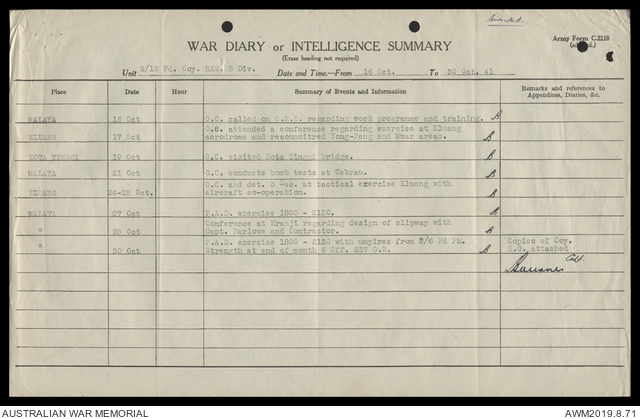 Army Form C.2118
WAR DIARY or INTELLIGENCE SUMMARY
(Erase heading not required)
Unit 2/12 Fd. Coy. RAE. 8 Div. Date and Time.—From 16 Oct. To 30 Oct. 41
Place Date Hour Summary of Events and Information Remarks and references to Appendices, Diaries, &c.
MALAYA 16 Oct O.C. called on C.R.E. regarding work programme and training.
KLUANG 17 Oct O.C. attended a conference regarding exercise at Kluang
aerodrome and reconnoitred Yong-Peng and Muar areas.
KOTA TINGGI 19 Oct O.C. visited Kota Tinggi bridge.
MALAYA 21 Oct O.C. conducts bomb tests at Tebrau.
KLUANG 24-25 Oct. O.C. and det. 3 -sec. at tactical exercise Kluang with
aircraft co-operation.
MALAYA 27 Oct P.A.D. exercise 1800 - 2130.
" 28 Oct Conference at Kranji regarding design of slipway with
Capt. Barlowe and Contractor.
" 30 Oct P.A.D. exercise 1800 - 2130 with umpires from 2/6 Fd Pk.
Strength at end of month 6 Off. 237 O.R.
Copies of Coy.
R.O. attached
AUSTRALIAN WAR MEMORIAL AWM2019.8.71